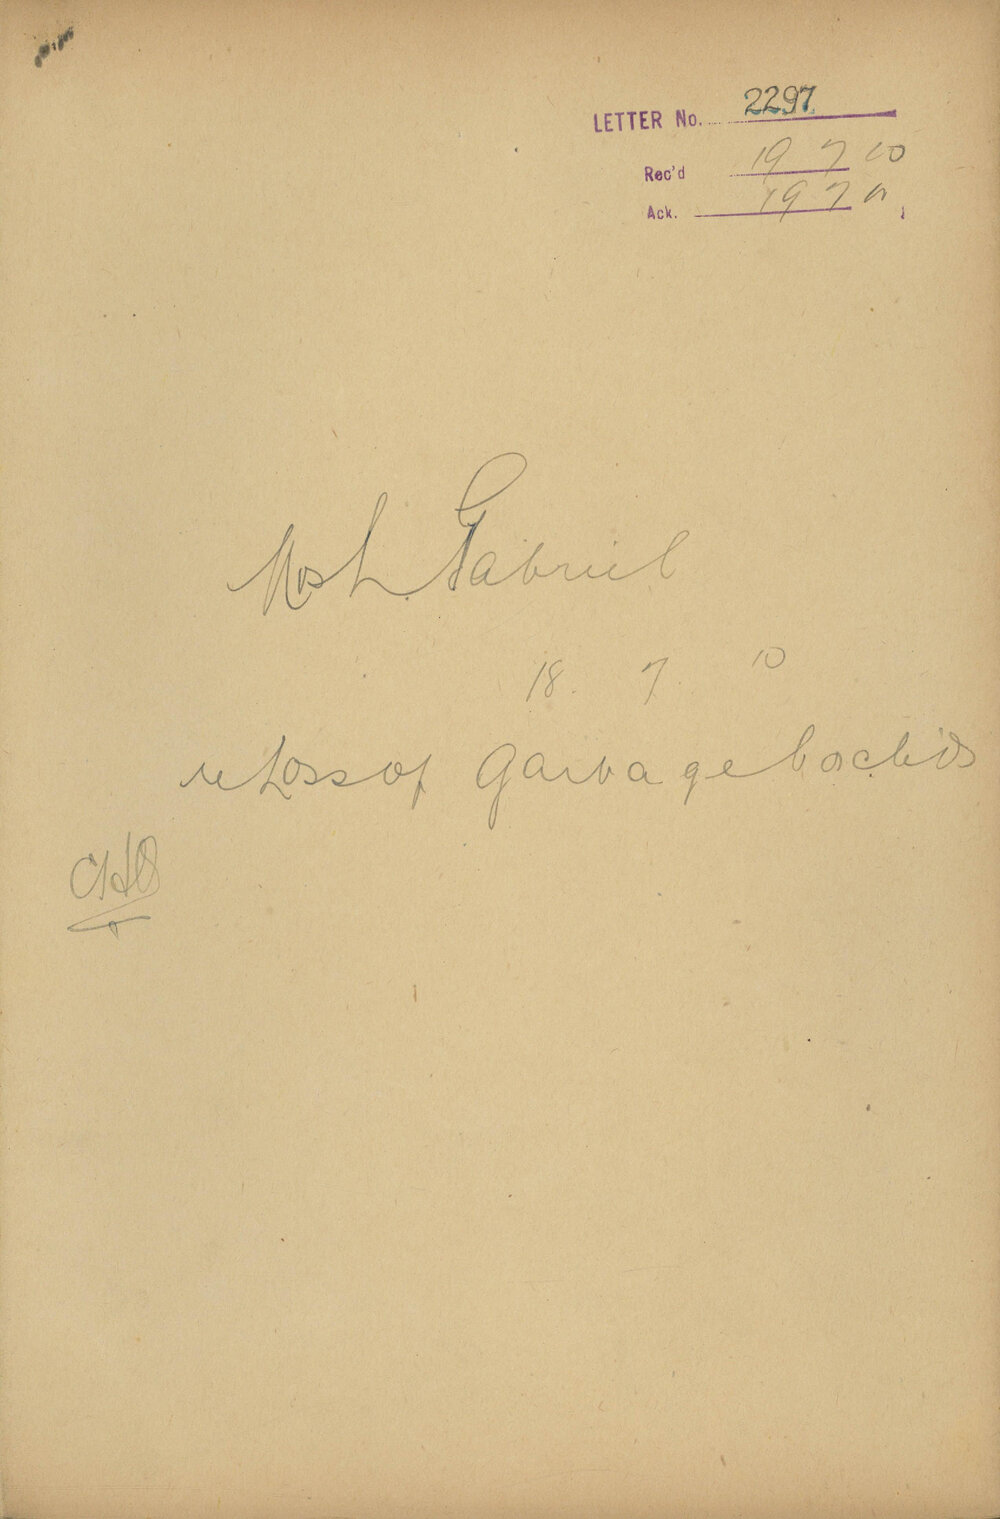 LETTER No. 2297
Rec'd 19 7 10
Ack. 19 7
Mrs L. Gabriel
18. 7. 10
re Loss of Garbage